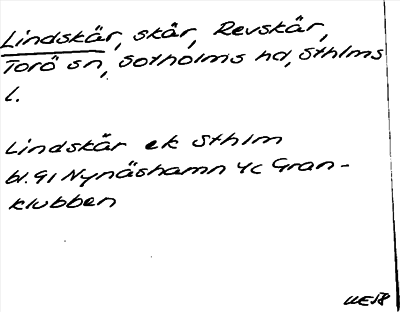 Lindskär, skär, Revskär,
Torö sn, Sotholms hd, Sthlms
l.
Lindskär ek Sthlm
bl. 91 Nynäshamn 4c Gran-
klubben